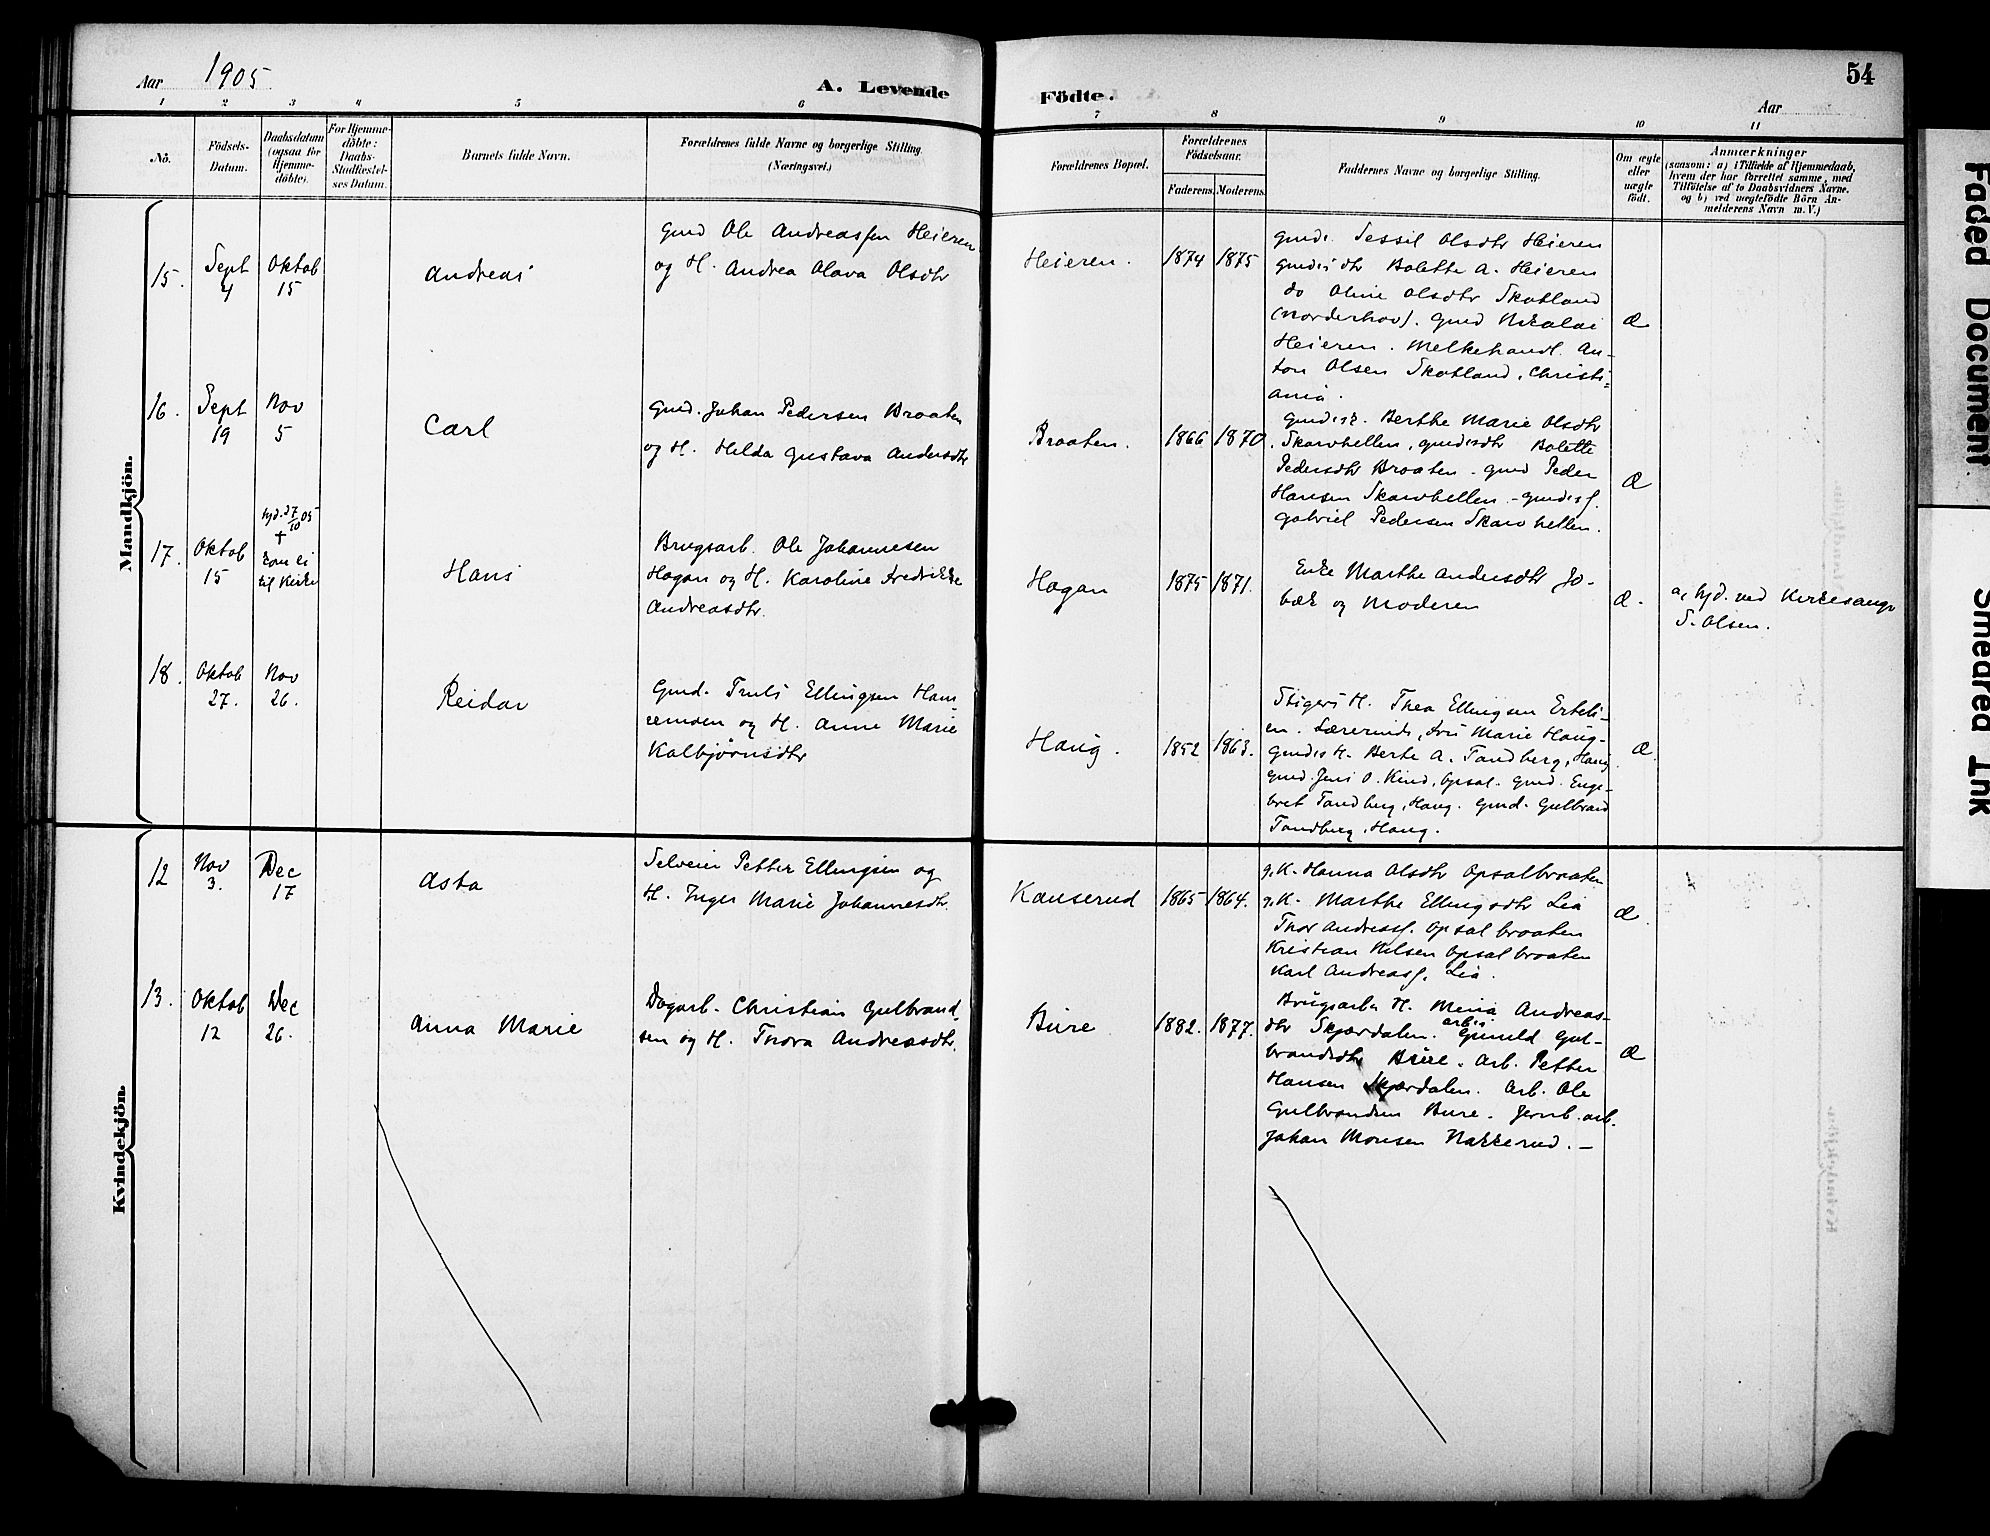 Aar 1905
A. Levende Födte.
54
Aar
1 2 3 4 5 6 7 8 9 10 11
Nö.
Födsels-Datum.
Daabsdatum (ogsaa for Hjemme-döbte).
For Hjemme-döbte: Daabs-Stadfæstel-ses Datum.
Barnets fulde Navn.
Forældrenes fulde Navne og borgerlige Stilling.
(Næringsvei.)
Forældrenes Bopæl.
Forældrenes Födselsaar.
Faderens. Moderens.
Faddernes Navne og borgerlige Stilling.
Om ægte eller uægte födt.
Anmærkninger
(saasom: a) i Tilfælde af Hjemmedaab,
hvem der har forrettet samme, med
Tilföielse af to Daabsvidners Navne.
og b) ved uægtefödte Börn An-
melderens Navn m. V.)
Mandkjön.
15.
Sept
4
Oktob
15
Andreas
Gmd Ole Andreassen Heieren
og H. Andrea Olava Olsdtr
Heieren.
1874 1875
Gmds. Sessil Olsdtr Heieren
Gmdsdtr Bolette A. Heieren
do Oline Olsdtr Skotland
(Norderhov). Gmd Nikolai
Heieren. Melkehandl. An-
ton Olsen Skotland, Christi-
ania.
Æ
16.
Sept
19
Nov
5
Carl
Gmd. Johan Pedersen Braaten
og H. Helda Gustava Andersdtr
Braaten.
1866 1870
Berthe Marie Olsdtr
Skarvhellen, gmdsdtr Bolette
Pedersdtr Braaten - Gmd Peder
Hansen Skarvhellen - gmdss.
Gabriel Pedersen Skarvhellen.
Æ
17.
Oktob
15
hjd. 27/10 05
+
kom ei
til Kirke
Hans
Brugsarb. Ole Johannesen
Hagan og H. Karoline Fredrikke
Andreasdtr.
Hagan
1875 1871.
Enke Marthe Andersdtr Jo-
bæk og Moderen
Æ.
a, hjd. ved Kirkesanger
S. Olsen.
18.
Oktob
27.
Nov
26.
Reidar
Gmd. Truls Ellingsen Hans-
emoen og H. Anne Marie
Kolbjørnsdtr
Haug.
1852 1863.
Stigers H. Thea Ellingsen Erteli-
en. Lærerinde, Marie Haug-
Gmds H. Berte A. Tandberg, Haug.
Gmd. Jens O. Kind, Opsal. Gmd. Enge-
bret Tandberg, Haug. Gmd. Gulbrand
Tandberg, Haug.
Æ.
Kvindekjön.
12
Nov
3.
Dec
17
Asta
Selveier Petter Ellingsen og
H. Inger Marie Johannesdtr.
Kauserud
1865 1864.
g.K. Hanna Olsdtr Opsalbraaten
g.K. Marthe Ellingsdtr Lia
Thor Andreass. Opsalbraaten
Kristian Nilsen Opsalbraaten
Karl Andreass. Lia.
Æ.
13.
Oktob
12
Dec
26.
Anna Marie
Dagarb. Christian Gulbrand-
sen og H. Thora Andreasdtr.
Bure
1882. 1877.
Brugsarbs H. Mina Andreas-
dtr Skjærdalen. arb.s Gunild Gul-
brandsdtr Bure. Arb. Petter
Hansen Skjærdalen. Arb. Ole
Gulbrandsen Bure. Jernb. arb.
Johan Monsen Nakkerud. —
Æ
Faded Document.
Smeared Ink